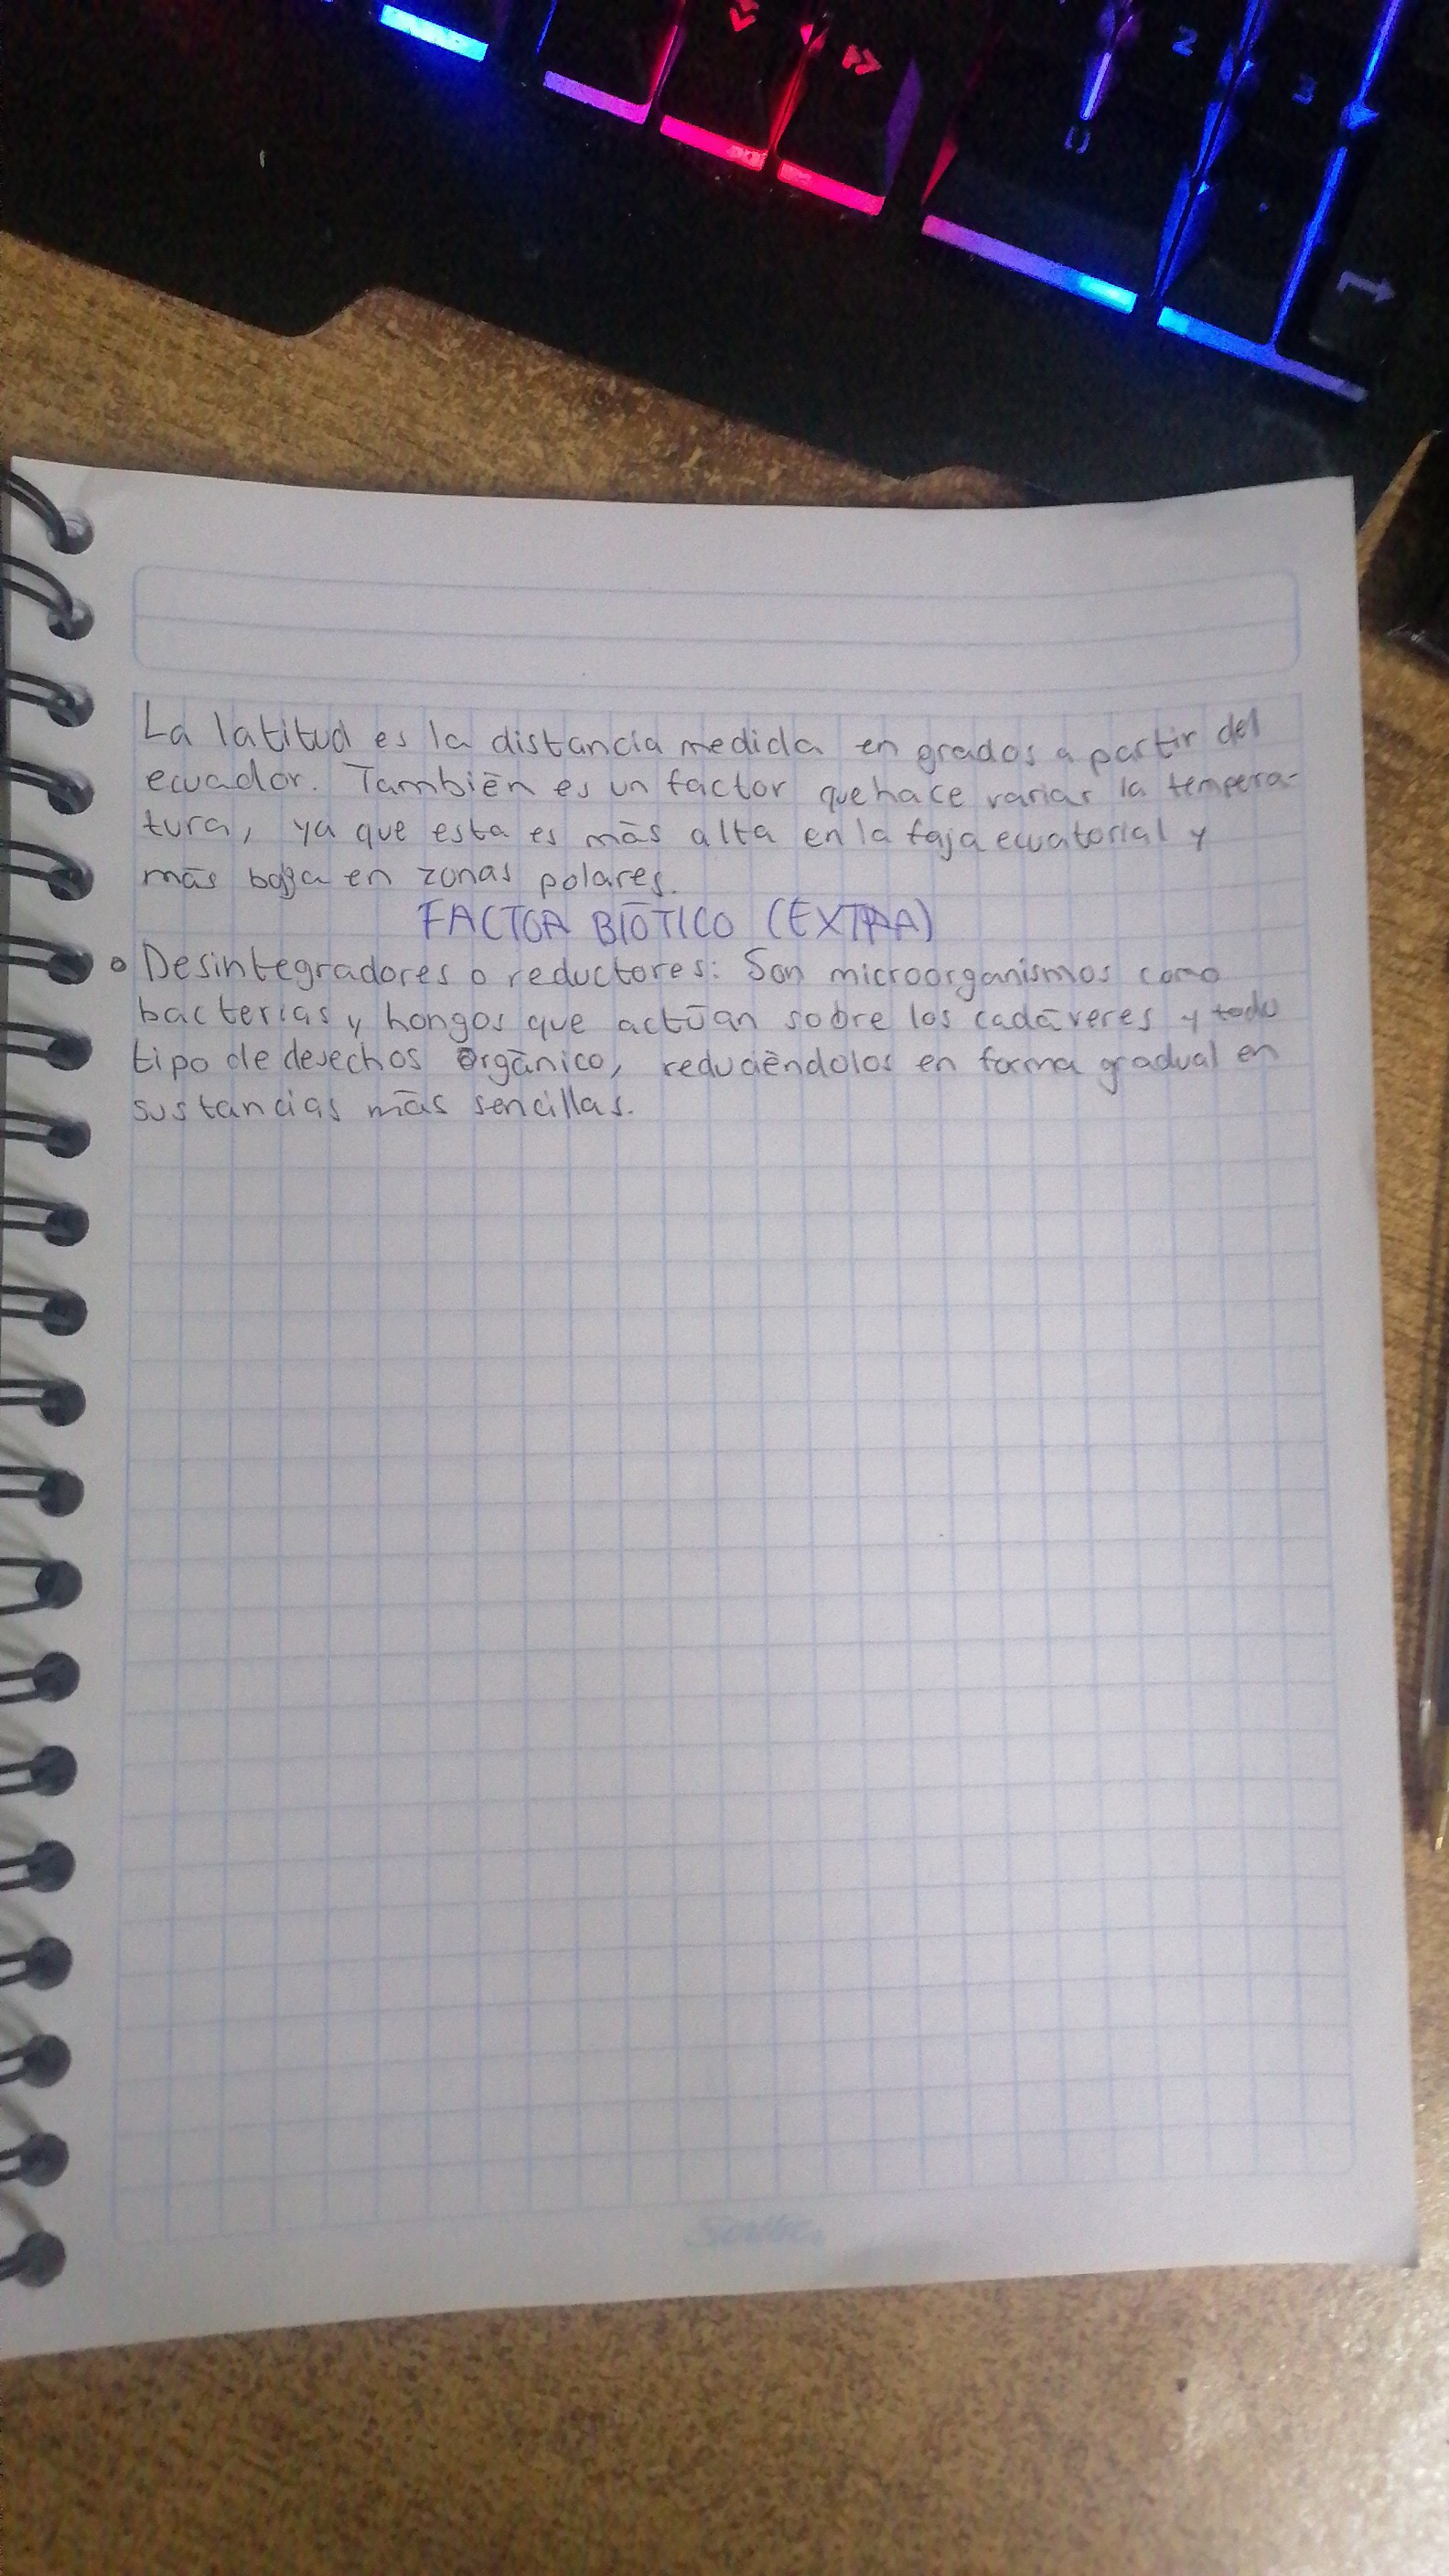 2
3
La latitud es la distancia medida en grados a partir del
ecuador. También es un factor que hace variar la tempera-
tura, ya que esta es más alta en la faja ecuatorial y
más baja en zonas polares.
FACTOR BIÓTICO (EXTRA)
• Desintegradores o reductores: Son microorganismos como
bacterias y hongos que actúan sobre los cadáveres y todo
tipo de desechos orgánico, reduciéndolos en forma gradual en
sustancias más sencillas.
Scribe